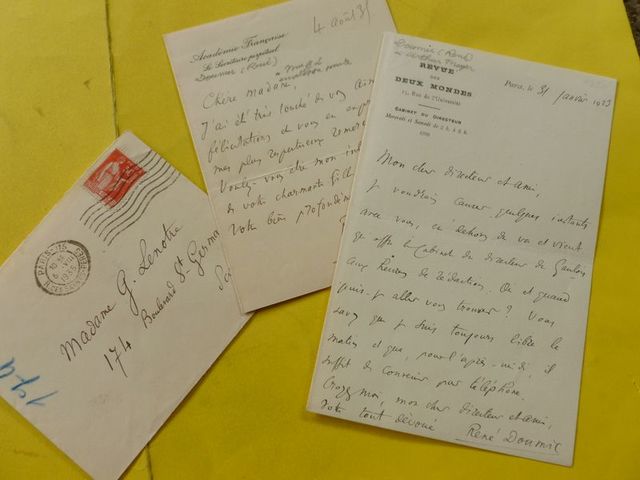 PARIS-115
1935
Madame G. Lenotre
174 Boulevard St Germa
Académie Française
Le Secrétaire perpétuel
Doumic (René)
4 août 31
Chère madame,
J'ai été très touché de vos aima
félicitations et vous en
mes plus respectueux remer
Voulez-vous être mon
de votre charmante fill
Votre bien profondém
Doumic (René)
à Arthur Meyer
REVUE
DES
DEUX MONDES
15, Rue de l'Université
CABINET DU DIRECTEUR
Mercredi et Samedi de 2 h. à 4 h.
Paris, le 31 janvier 1923
Mon cher directeur et ami,
Je voudrais causer quelques instants
avec vous, en dehors du va et vient
qu'offre le Cabinet du directeur du Gaulois
aux heures de rédaction. Où et quand
puis-je aller vous trouver ? Vous
savez que je suis toujours libre le
matin et que, pour l'après-midi, il
suffit de convenir par téléphone.
Croyez-moi, mon cher directeur et ami,
Votre tout dévoué
René Doumic